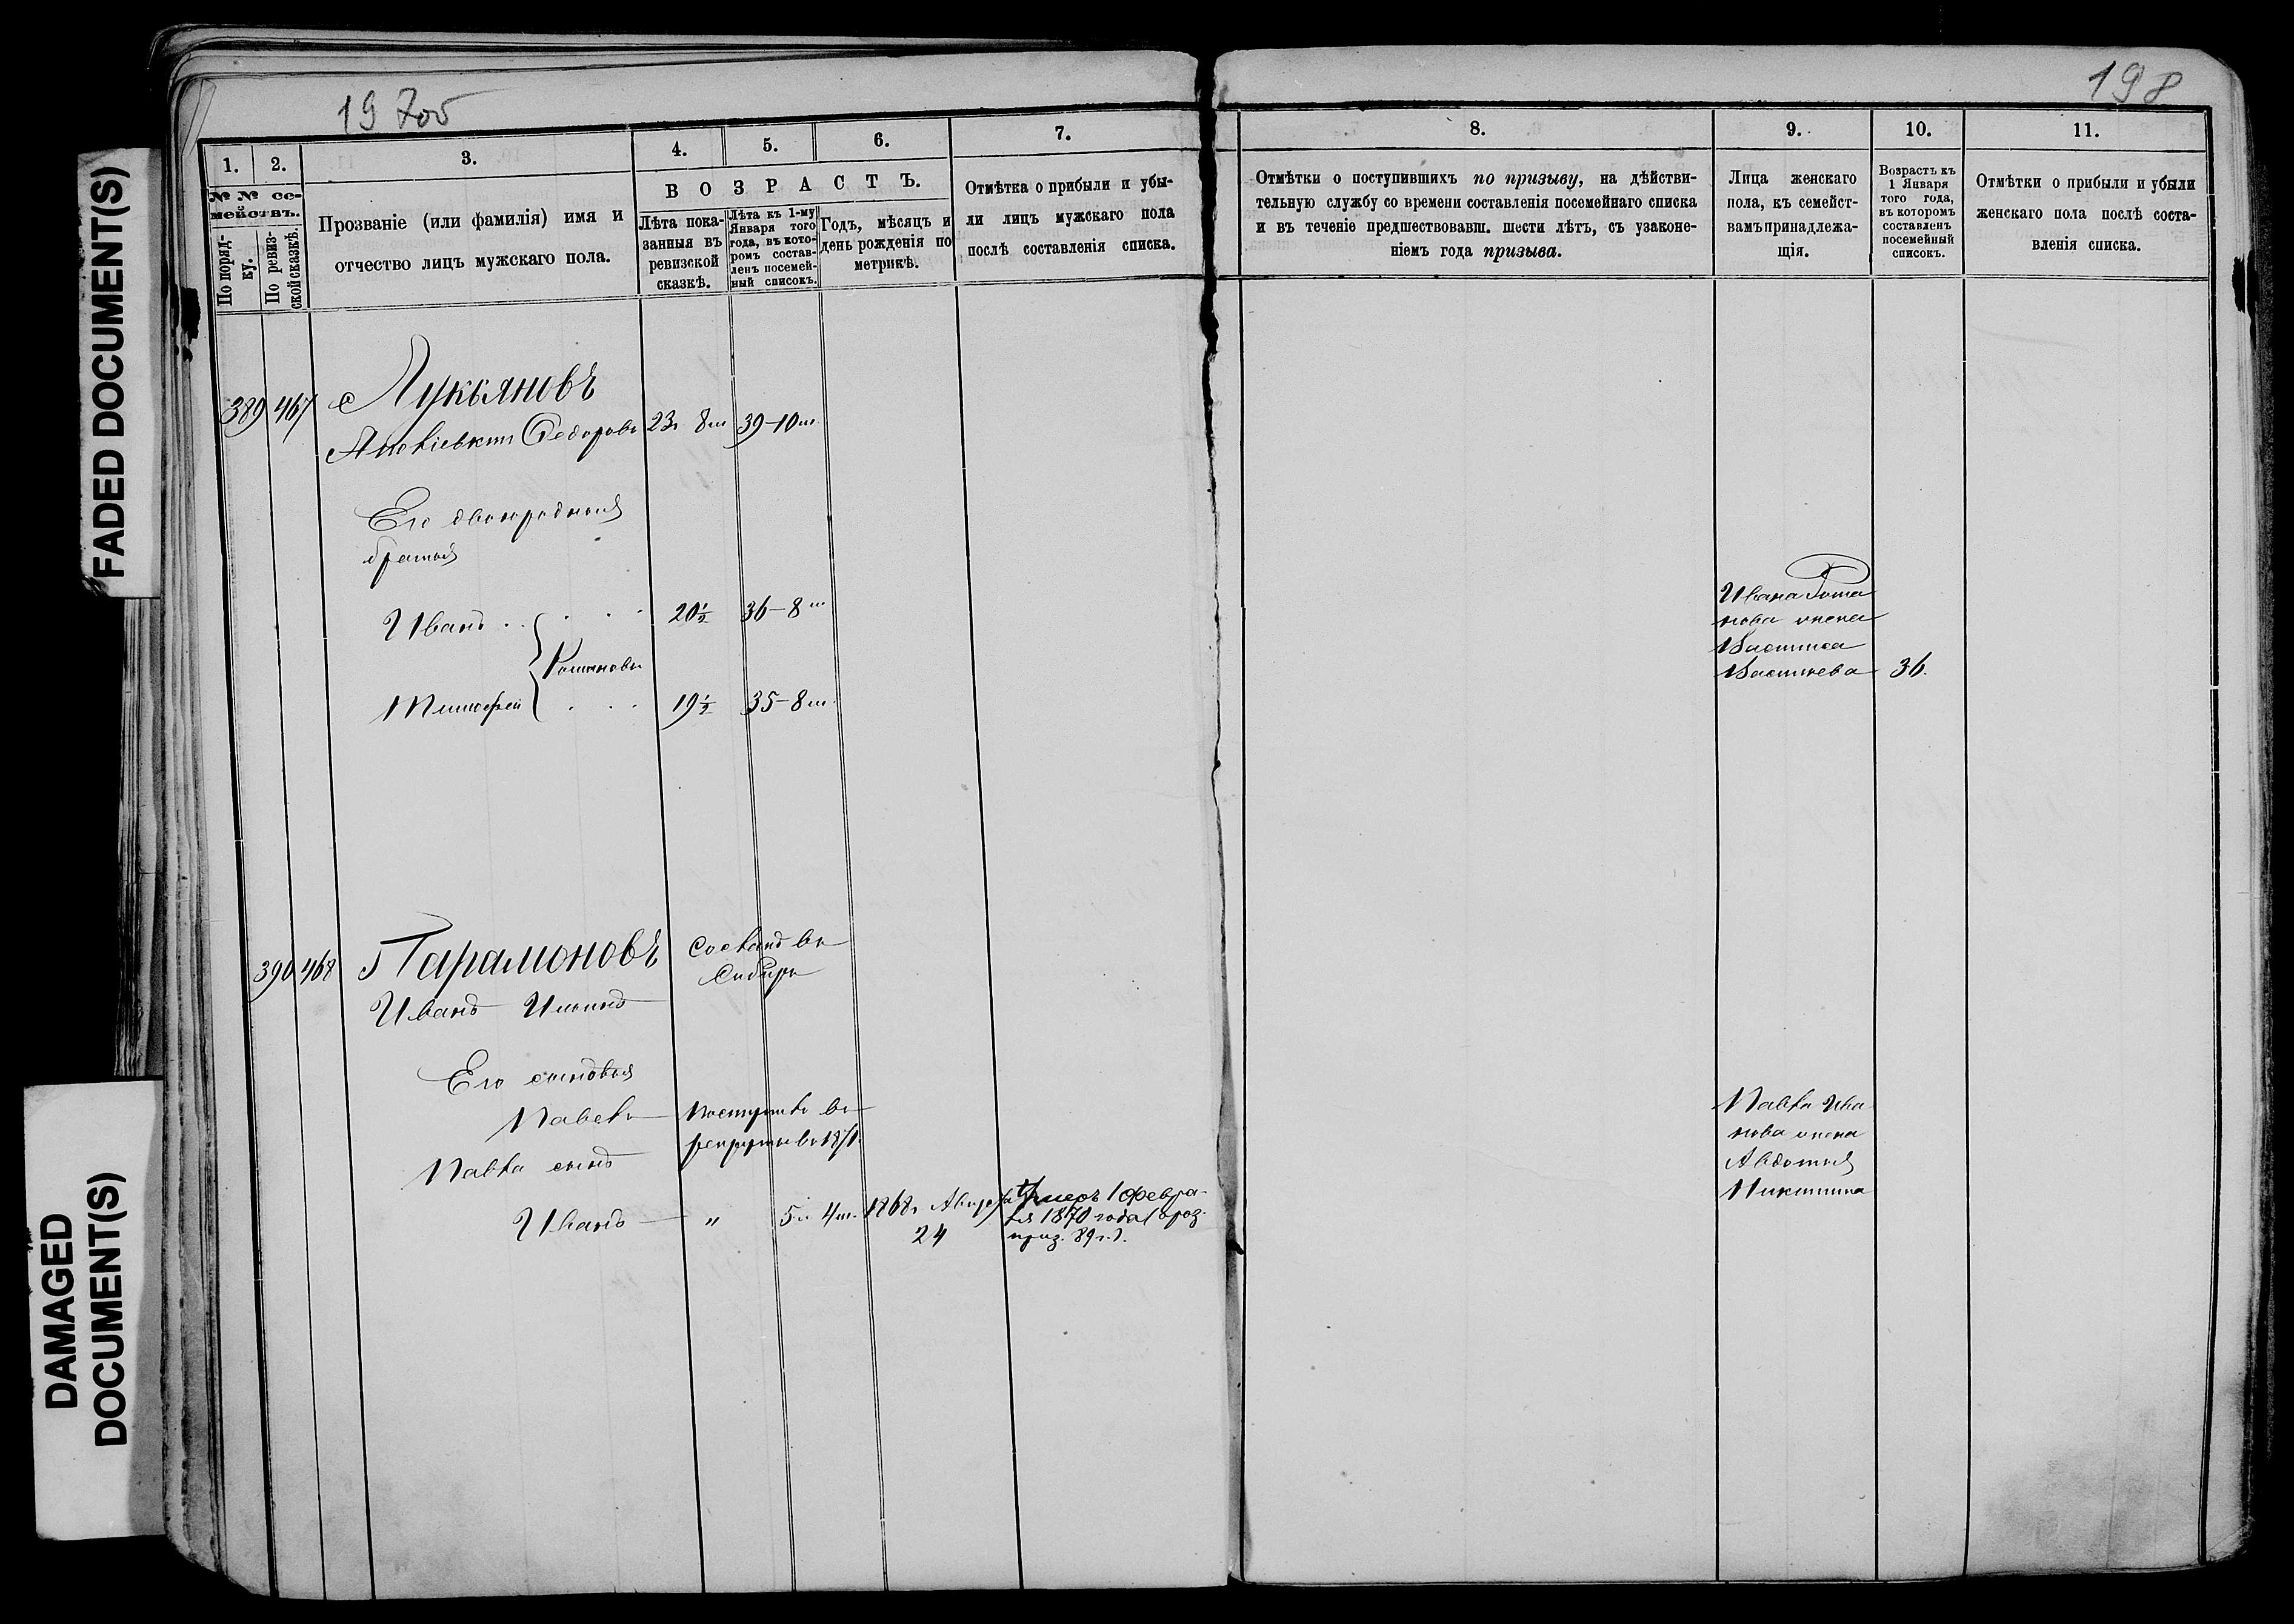 FADED DOCUMENT(S)
DAMAGED
DOCUMENT(S)
197об
198
1.
2.
3.
4.
5.
6.
7.
№ № се-
мействъ.
По поряд-
ку.
По ревиз-
ской сказкѣ.
Прозваніе (или фамилія) имя и
отчество лицъ мужскаго пола.
ВОЗРАСТЪ.
Лѣта пока-
занныя въ
ревизской
сказкѣ.
Лѣта къ 1-му
Января того
года, въ кото-
ромъ состав-
ленъ посемей-
ный списокъ.
Годъ, мѣсяцъ и
день рожденія по
метрикѣ.
Отмѣтка о прибыли и убы-
ли лицъ мужскаго пола
послѣ составленія списка.
8.
9.
10.
11.
Отмѣтки о поступившихъ по призыву, на дѣйстви-
тельную службу со времени составленія посемейнаго списка
и въ теченіе предшествовавш. шести лѣтъ, съ узаконе-
ніемъ года призыва.
Лица женскаго
пола, къ семейст-
вамъ принадлежа-
щія.
Возрастъ къ
1 Января
того года,
въ которомъ
составленъ
посемейный
списокъ.
Отмѣтки о прибыли и убыли
женскаго пола послѣ соста-
вленія списка.
389 467 Лукьяновъ
Федоровъ 23 8м 39-10м.
Его двоюродныя
братья
Иванъ 20½ 36-8м
Романовы
Тимофей 19½ 35-8м.
Ивана Рома
нова жена
Василиса
Васильева 36.
390 468 Парамоновъ Сосланъ въ
Сибирь
Иванъ Ильинъ
Его сыновья
Павелъ Поступилъ въ
рекруты въ 1871.
Павла сынъ
Иванъ " 5л. 4м. 1868г. Августа
24
Умеръ 1 Февра-
ля 1870 года
приз. 89 г.).
Павла Ива
нова жена
Авдотья
Никитина